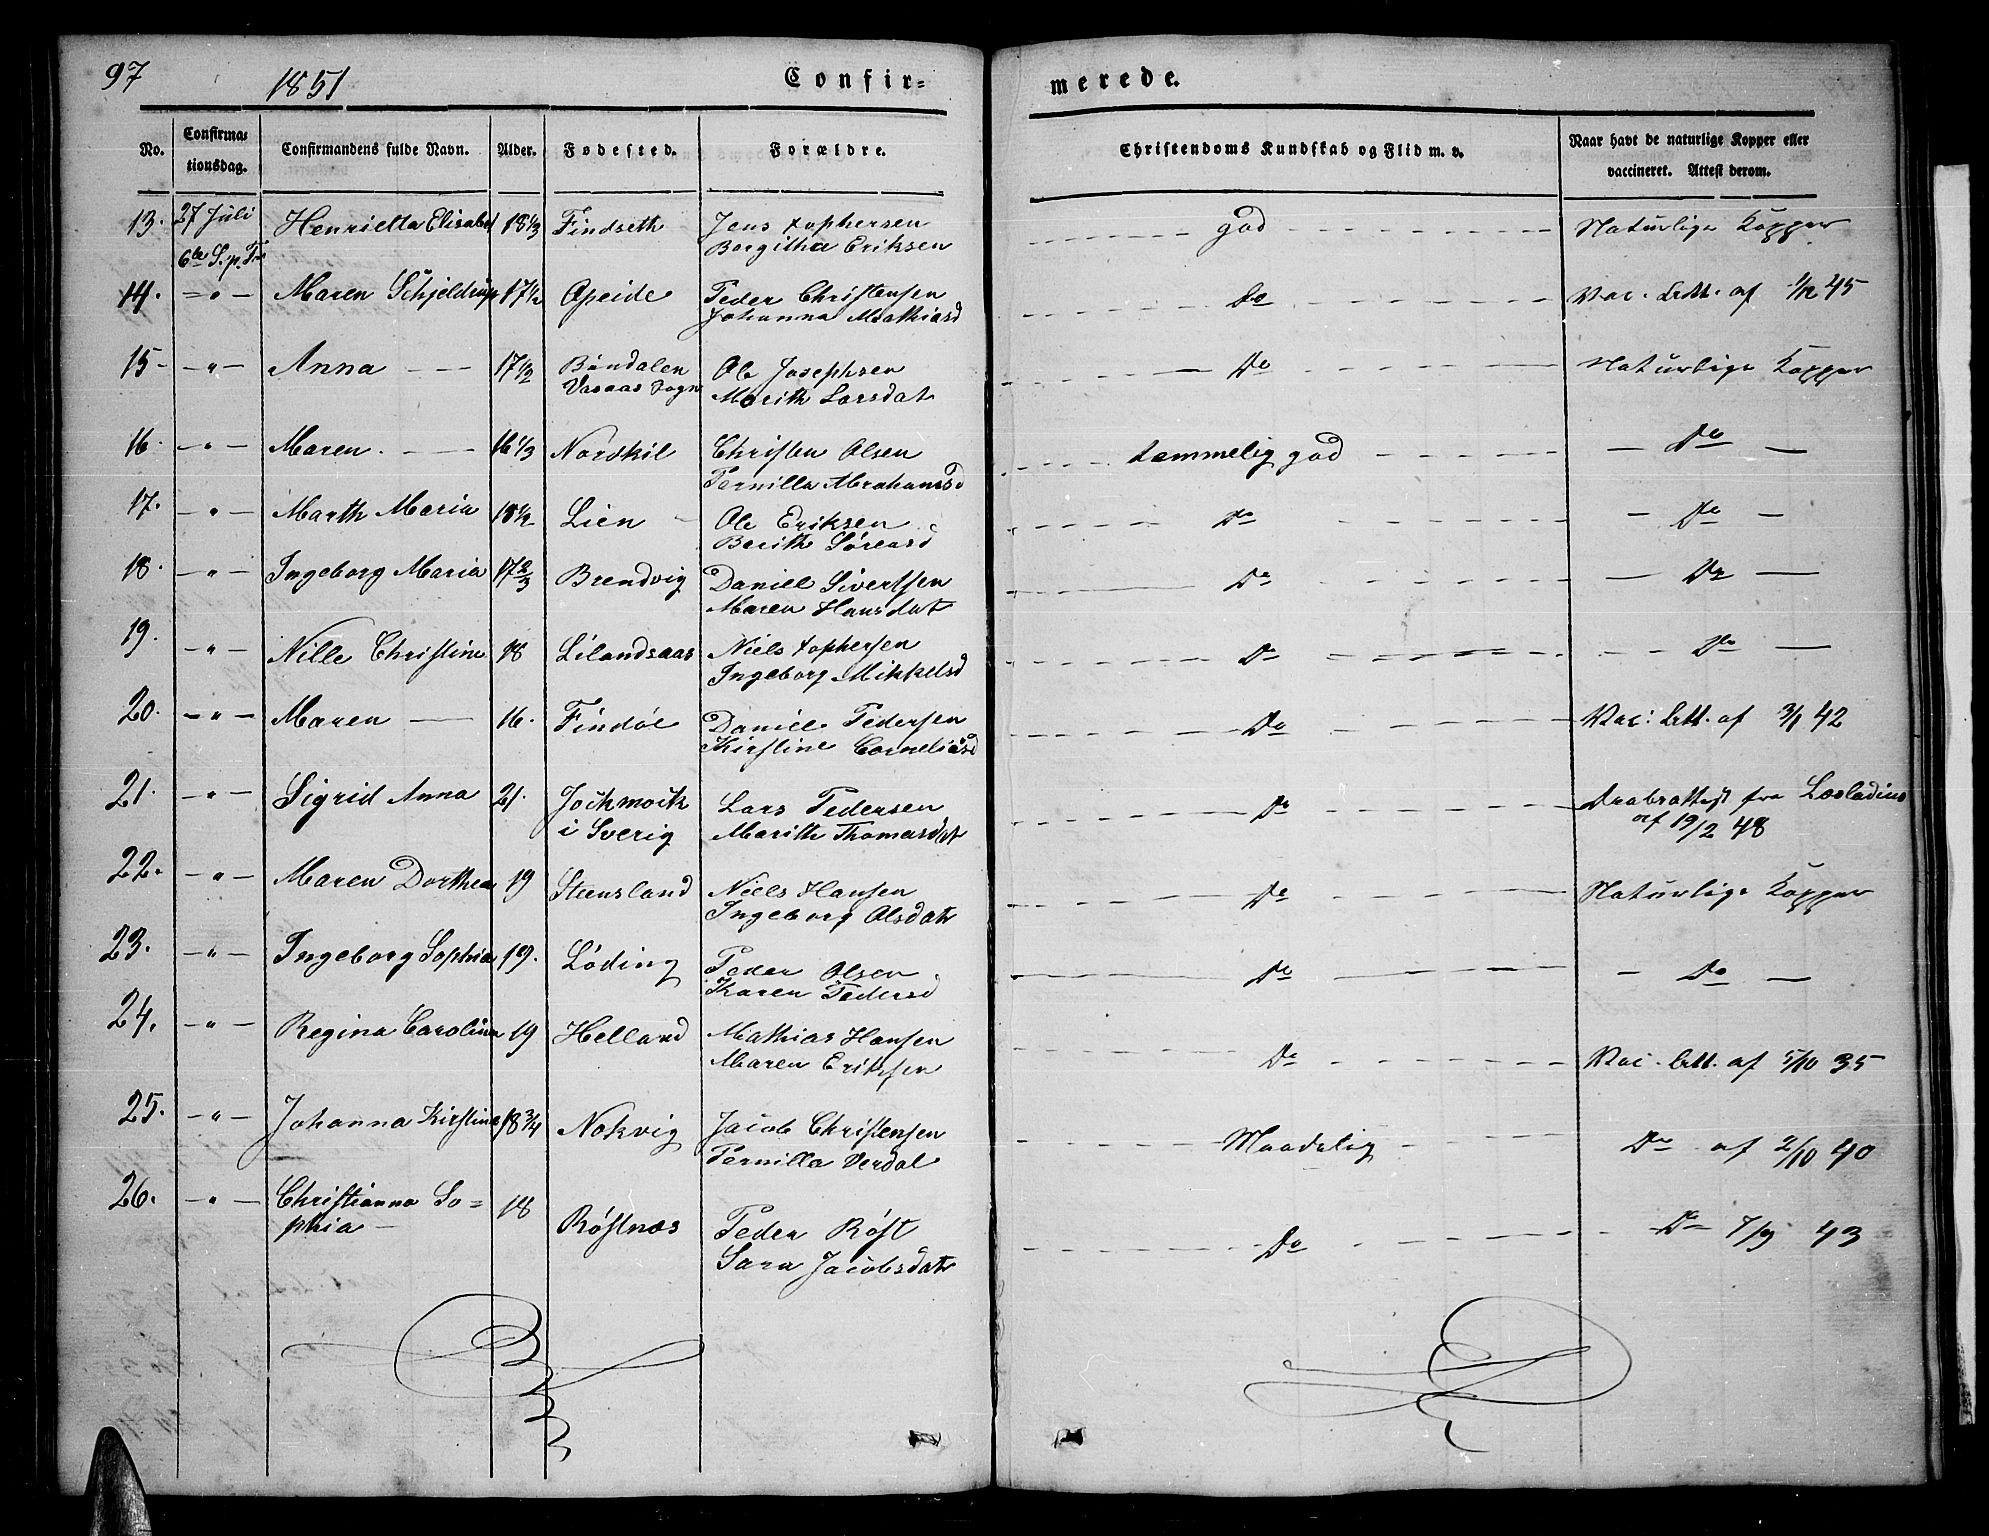 97
1851
Confir=
merede.
No.
Confirma=
tionsdag.
Confirmandens fulde Navn.
Alder.
Fødested.
Forældre.
Christendoms Kundskab og Flid m. v.
Naar havt de naturlige Kopper eller
vaccineret. Attest derom.
13. 27 Juli Henrietta Elisabet 18 1/3 Findseth Jens Xophersen god Naturlige Kopper
6te S. p. Tr Borgitha Eriksen
14. — " — Maren Schjeldrup 17 1/2 Apeide Peder Christensen Do Vac. Att. af 1/12 45
Johanna Mathiasd
15 — " — Anna 17 1/2 Bøndalen Ole Josephsen Do Naturlige Kopper
Vasaas Sogn Marith Larsdat
16 — " — Maren. 16 1/3 Norskil Christen Olsen temmelig god — Do —
Pernilla Abrahamsd
17. — " — Marth Maria 18 1/2 Lien Ole Eriksen Do — Do —
Berith Sørensd
18. — " — Ingeborg Maria 17 2/3 Brendvig Daniel Sivertsen Do — Do —
Maren Hansdat
19. — " — Nille Christine 18 Lilandsaas Niels Xophersen Do — Do —
Ingeborg Mikkelsd
20. — " — Maren — 16. Findøe Daniel Pedersen Do Vac: Att. af 3/1 42
Kirstine Corneliusd
21. — " — Sigrid Anna 21. Jockmock Lars Pedersen Do fra Læstadius
i Sverig Marith Thomasdat af 19/2 48
22. — " — Maren Dorthea 19 Steensland Niels Hansen Do Naturlige Kopper
Ingeborg Olsdatr
23. — " — Ingeborg Sophia 19. Løding Peder Olsen Do — Do —
Karen Pedersd
24. — " — Regina Carolina 19 Helland Mathias Hansen Do Vac. Att. af 5/10 35
Maren Eriksen
25. — " — Johanna Kirstine 18 3/4 Nokvig Jacob Christensen Maadelig Do af 2/10 40
Pernilla Verdal
26. — " — Christianna So= 18 Røstnæs Peder Røst Do Do 7/9 43
phia — Sara Jacobsdatr